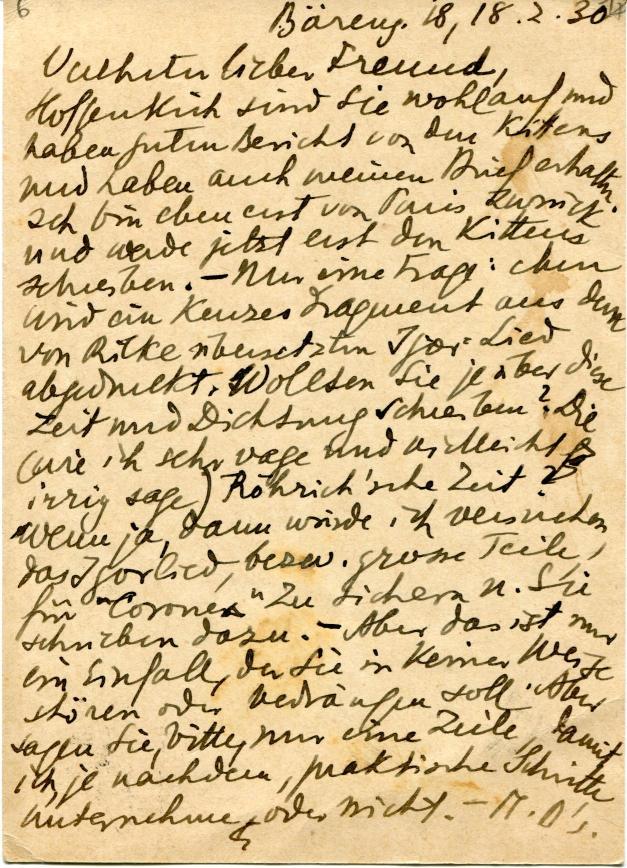 6
Bäreng. 18, 18.2.30
Verehrter lieber Freund,
Hoffentlich sind Sie wohlauf und
haben guten Bericht von den Kittens
und haben auch meinen Brief erhalten.
Ich bin eben erst von Paris zurück
und werde jetzt erst den Kittens
schreiben. – Nur eine Frage: eben
wird ein kurzes Fragment aus dem
von Rilke übersetzten Igor-Lied
abgedruckt. Wollten Sie je über diese
Zeit und Dichtung schreiben? Die
(wie ich sehr vage und vielleicht
irrig sage) Röhrich'sche Zeit?
Wenn ja, dann würde ich versuchen
das Igorlied, bezw. grosse Teile,
für "Corona" zu sichern u. Sie
schrieben dazu. – Aber das ist nur
ein Einfall, der Sie in keiner Weise
stören oder bedrängen soll. Aber
sagen Sie, bitte, nur eine Zeile, damit
ich, je nachdem, praktische Schritte
unternehme, oder nicht. –